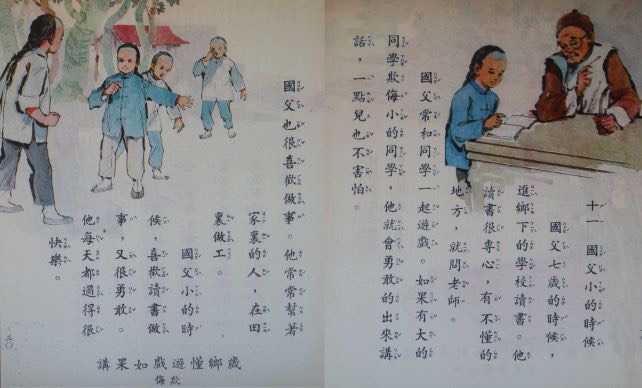 十一　國父小的時候
國父七歲的時候，
進鄉下的學校讀書。他
讀書很專心，有不懂的
地方，就問老師。
國父常和同學一起遊戲。如果有大的
同學欺侮小的同學，他就會勇敢的出來講
話，一點兒也不害怕。
國父也很喜歡做事。他常常幫著
家裏的人，在田
裏做工。
國父小的時
候，喜歡讀書做
事，又很勇敢。
他每天都過得很
快樂。
歲鄉懂遊戲如果講
欺侮